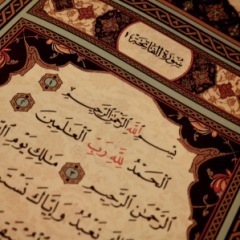 سُورَةُ ٱلْفَاتِحَةِ
بِسْمِ ٱللَّهِ ٱلرَّحْمَٰنِ ٱلرَّحِيمِ
ٱلْحَمْدُ لِلَّهِ رَبِّ ٱلْعَٰلَمِينَ
ٱلرَّحْمَٰنِ ٱلرَّحِيمِ مَٰلِكِ يَوْمِ
نَعْبُدُ وَإِيَّاكَ